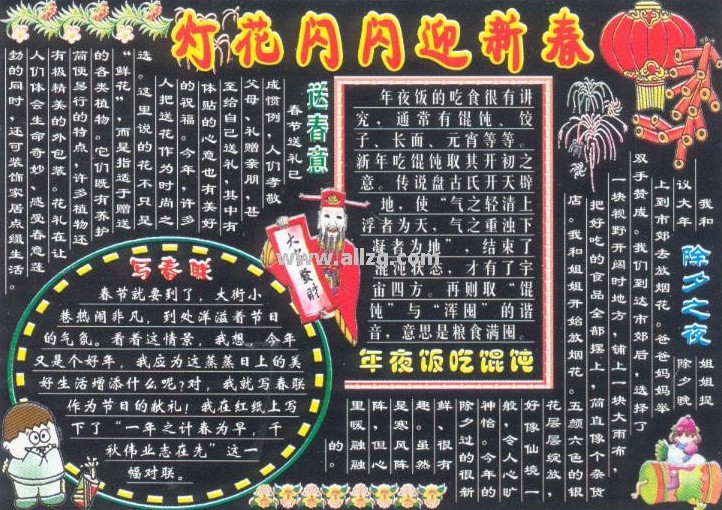 灯花闪闪迎新春
送春意
春节送礼已
成惯例，人们孝敬
父母、礼赠亲朋，甚
至给自己送礼，其中有
体贴的心意也有美好
的祝福。今年，许多
人把送花作为时尚之
选。这里说的花不只是
“鲜花”，而是指适于赠送
的各类植物。它们既有养护
简便易行的特点，许多植物还
有极精美的外包装，花礼在让
人们体会生命奇妙、感受春意蓬
勃的同时，还可装饰家居点缀生活。
年夜饭的吃食很有讲
究，通常有馄饨、饺
子、长面、元宵等等。
新年吃馄饨取其开初之
意。传说盘古氏开天辟
地，使“气之轻清上
浮者为天，气之重浊下
凝者为地”，结束了
混沌状态，才有了宇
宙四方。再则取“馄
饨”与“浑囤”的谐
音，意思是粮食满囤。
年夜饭吃馄饨
大发財
www.allzg.com
写春联
春节就要到了，大街小
巷热闹非凡，到处洋溢着节日
的气氛。看着这情景，我想，今年
又是个好年，我应为这蒸蒸日上的美
好生活增添什么呢？对，我就写春联
作为节日的献礼！我在红纸上写
下了“一年之计春为早，千
秋伟业志在先”这一
幅对联。
除夕之夜
我和姐姐提
议大年除夕晚
上到市郊去放烟花。爸爸妈妈举
双手赞成。我们到达市郊后，选择了
一块视野开阔时地方，铺上一块大雨布，
把好吃的食品全部摆上，简直像个杂货
店。我和姐姐开始放烟花。五颜六色的银
花层层绽放，
好像仙境一
般，令人心旷
神怡。今年的
除夕过的很新
鲜、很有
趣。虽然
是寒风阵
阵，但心
里暖融融
的。